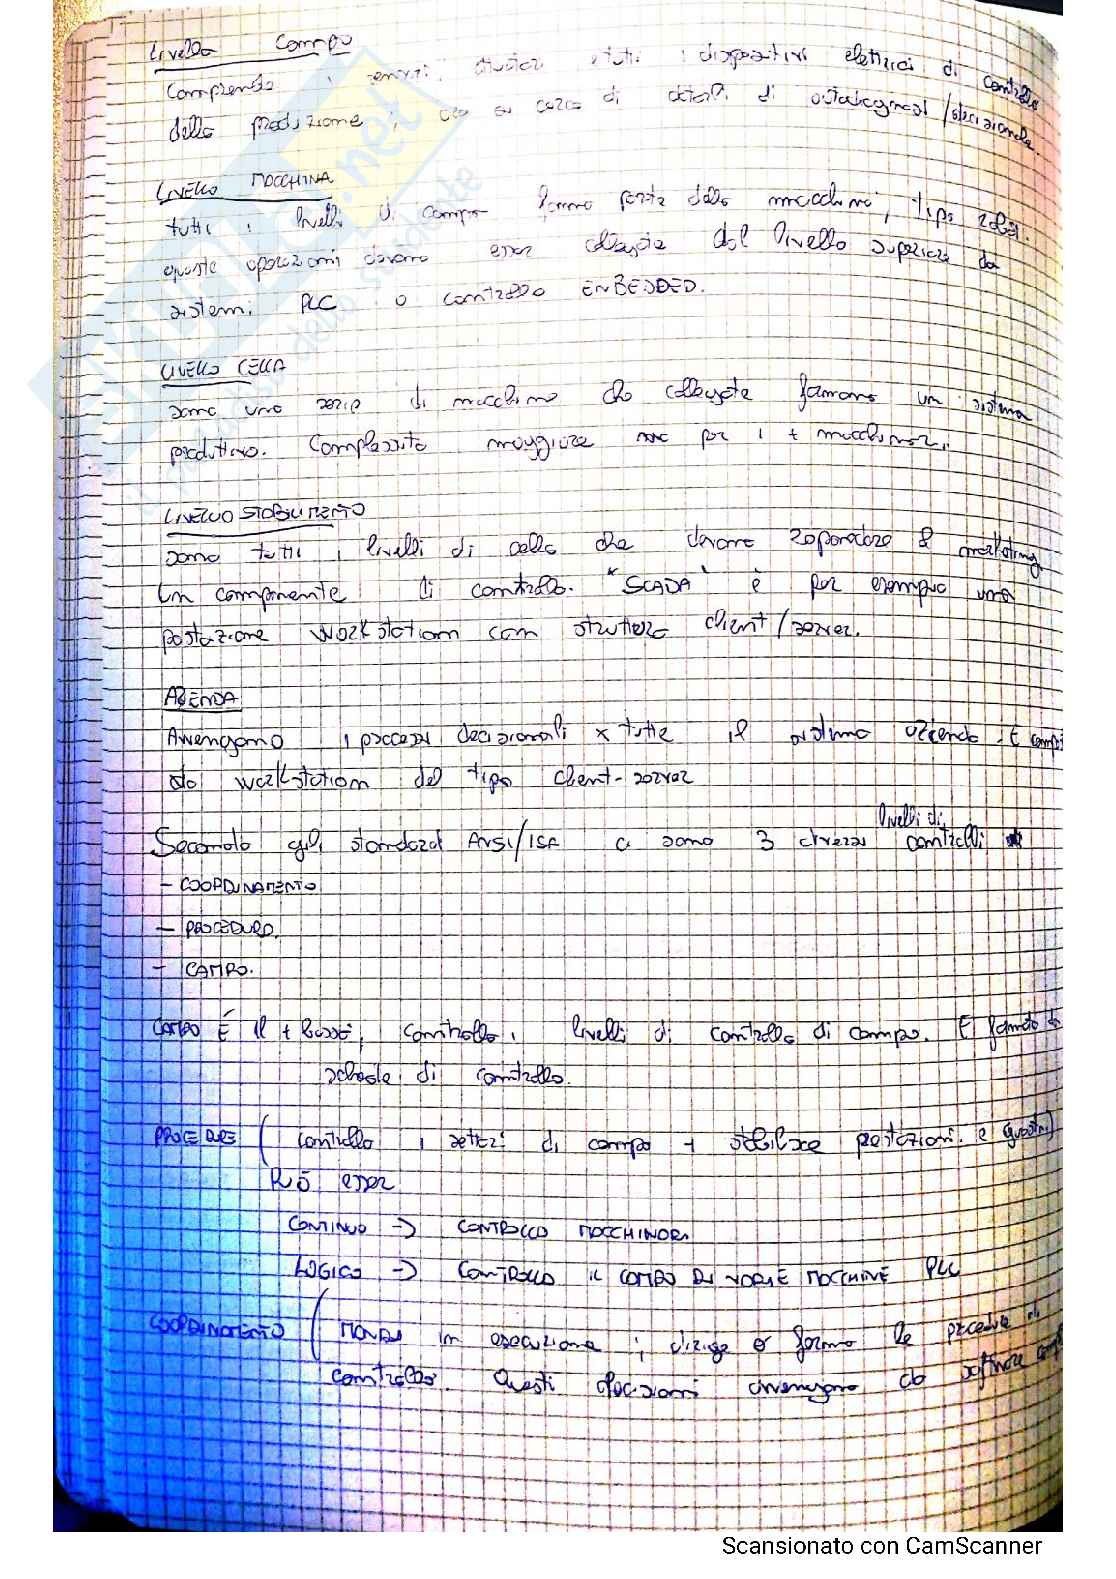 Livello Campo
Comprende i sensori, attuatori e tutti i dispositivi elettrici di controllo
della produzione,
LIVELLO MACCHINA
tutti i livelli di campo fanno parte della macchina, tipo robot.
queste operazioni devono esser collegate dal livello superiore da
sistemi PLC o controllo EMBEDDED.
LIVELLO CELLA
sono una serie di macchine che collegate formano un sistema
produttivo. Complessità maggiore per i + macchinari.
LIVELLO STABILIMENTO
sono tutti i livelli di cella che devono rispondere al marketing
Un componente di controllo. "SCADA" è per esempio una
postazione workstation con struttura client/server.
AZIENDA
Avvengono i processi decisionali x tutto il sistema azienda. È compo
sto workstation del tipo client-server
livelli di
Secondo gli standard ANSI/ISA ci sono 3 diversi controlli
- COORDINAMENTO
- PROCEDURA
- CAMPO.
CAMPO È il + basso, controlla i livelli di controllo di campo. È formato da
schede di controllo.
PROCEDURE ( controlla i settori di campo + stabilisce prestazioni e guasti)
Può esser
CONTINUO -> CONTROLLO MACCHINARI
LOGICO -> CONTROLLO IL CAMPO DI VARIE MACCHINE PLC
COORDINAMENTO ( MANDA in esecuzione, dirige e ferma le procedure di
controllo. Questi decisioni avvengono da software
Scansionato con CamScanner